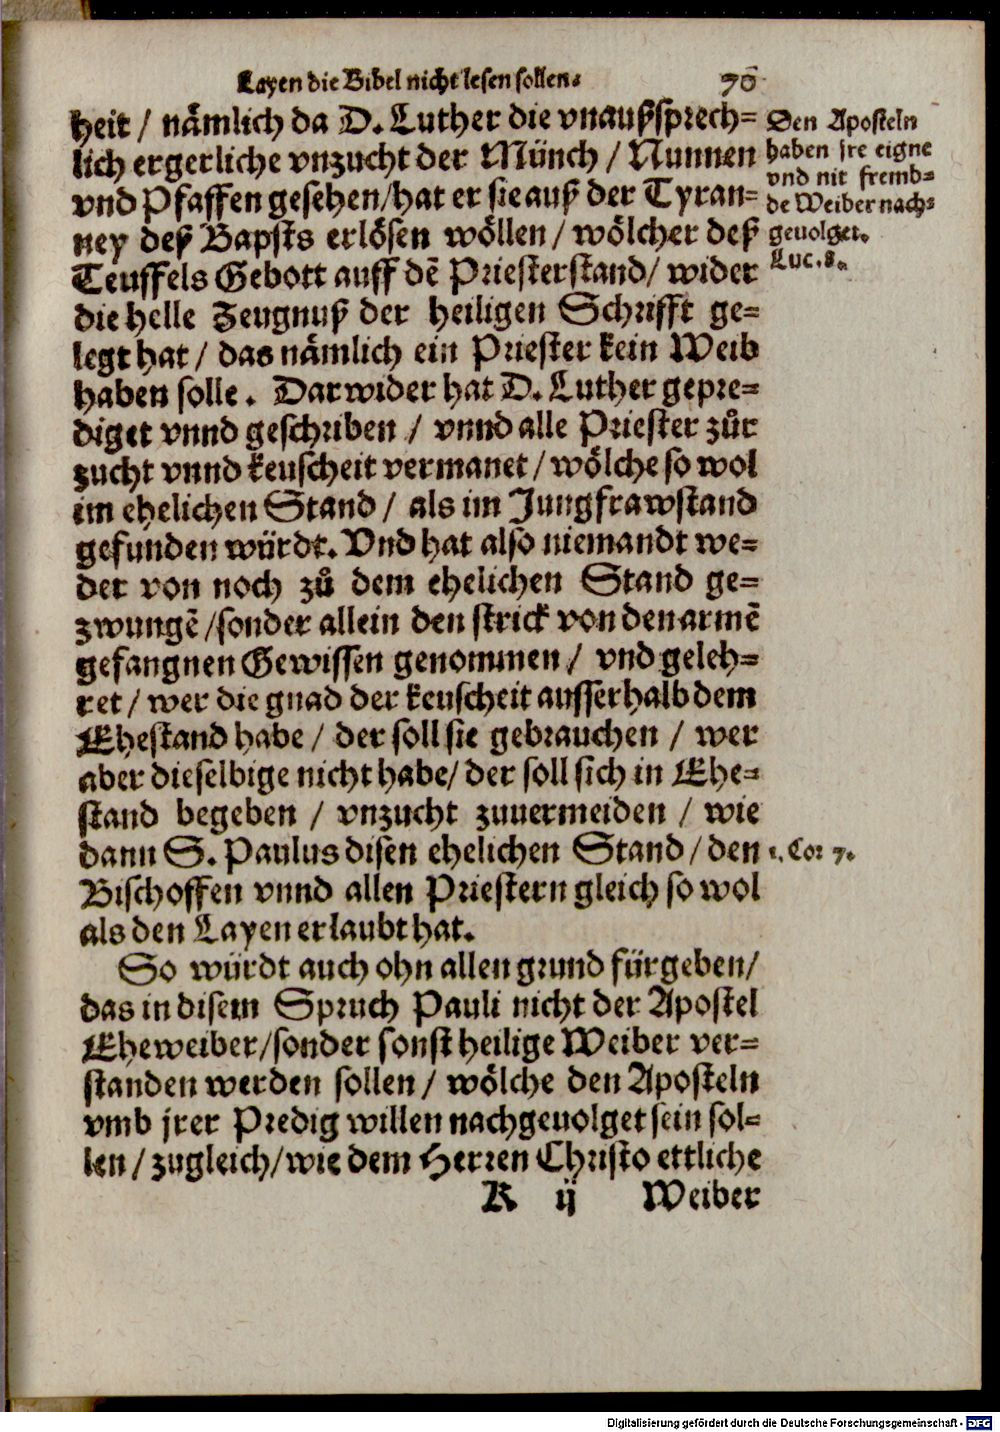 Layen die Bibel nicht lesen sollen. 70
heit / nämlich da D. Luther die vnaußsprech=
lich ergerliche vnzucht der Münch / Nunnen
vnd Pfaffen gesehen/hat er sie auß der Tyran=
ney deß Bapsts erlösen wöllen / wölcher deß
Teuffels Gebott auff dẽ Priesterstand/ wider
die helle Zeugnuß der heiligen Schrifft ge=
legt hat / das nämlich ein Priester kein Weib
haben solle. Darwider hat D. Luther gepre=
diget vnnd geschriben / vnnd alle Priester zůr
zucht vnnd keuscheit vermanet / wölche so wol
im ehelichen Stand / als im Jungfrawstand
gefunden würdt. Vnd hat also niemandt we=
der von noch zů dem ehelichen Stand ge=
zwungẽ /sonder allein den strick von den armẽ
gefangnen Gewissen genommen / vnd geleh=
ret / wer die gnad der keuscheit ausserhalb dem
Ehestand habe / der soll sie gebrauchen / wer
aber dieselbige nicht habe/ der soll sich in Ehe=
stand begeben / vnzucht zuuermeiden / wie
dann S. Paulus disen ehelichen Stand / den
Bischoffen vnnd allen Priestern gleich so wol
als den Layen erlaubt hat.
So würdt auch ohn allen grund fürgeben/
das in disem Spruch Pauli nicht der Apostel
Eheweiber/sonder sonst heilige Weiber ver=
standen werden sollen / wölche den Aposteln
vmb jrer Predig willen nachgeuolget sein sol=
len / zugleich/wie dem Herren Christo ettliche
K ij Weiber
Den Aposteln
haben jre eigne
vnd nit fremb=
de Weiber nach=
geuolget.
Luc. 8.
1. Cor 7.
Digitalisierung gefördert durch die Deutsche Forschungsgemeinschaft - DFG